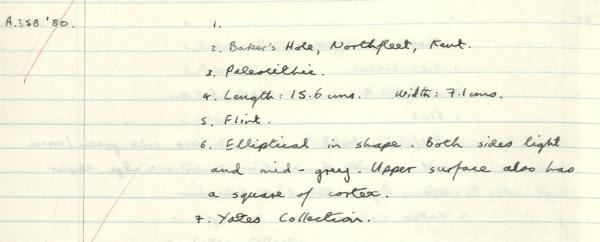 A.358 '80. 1.
2. Baker's Hole, Northfleet, Kent.
3. Paleolithic.
4. Length: 15.6 cms. Width: 7.1 cms.
5. Flint.
6. Elliptical in shape. Both sides light
and mid-grey. Upper surface also has
a square of cortex.
7. Yates Collection.